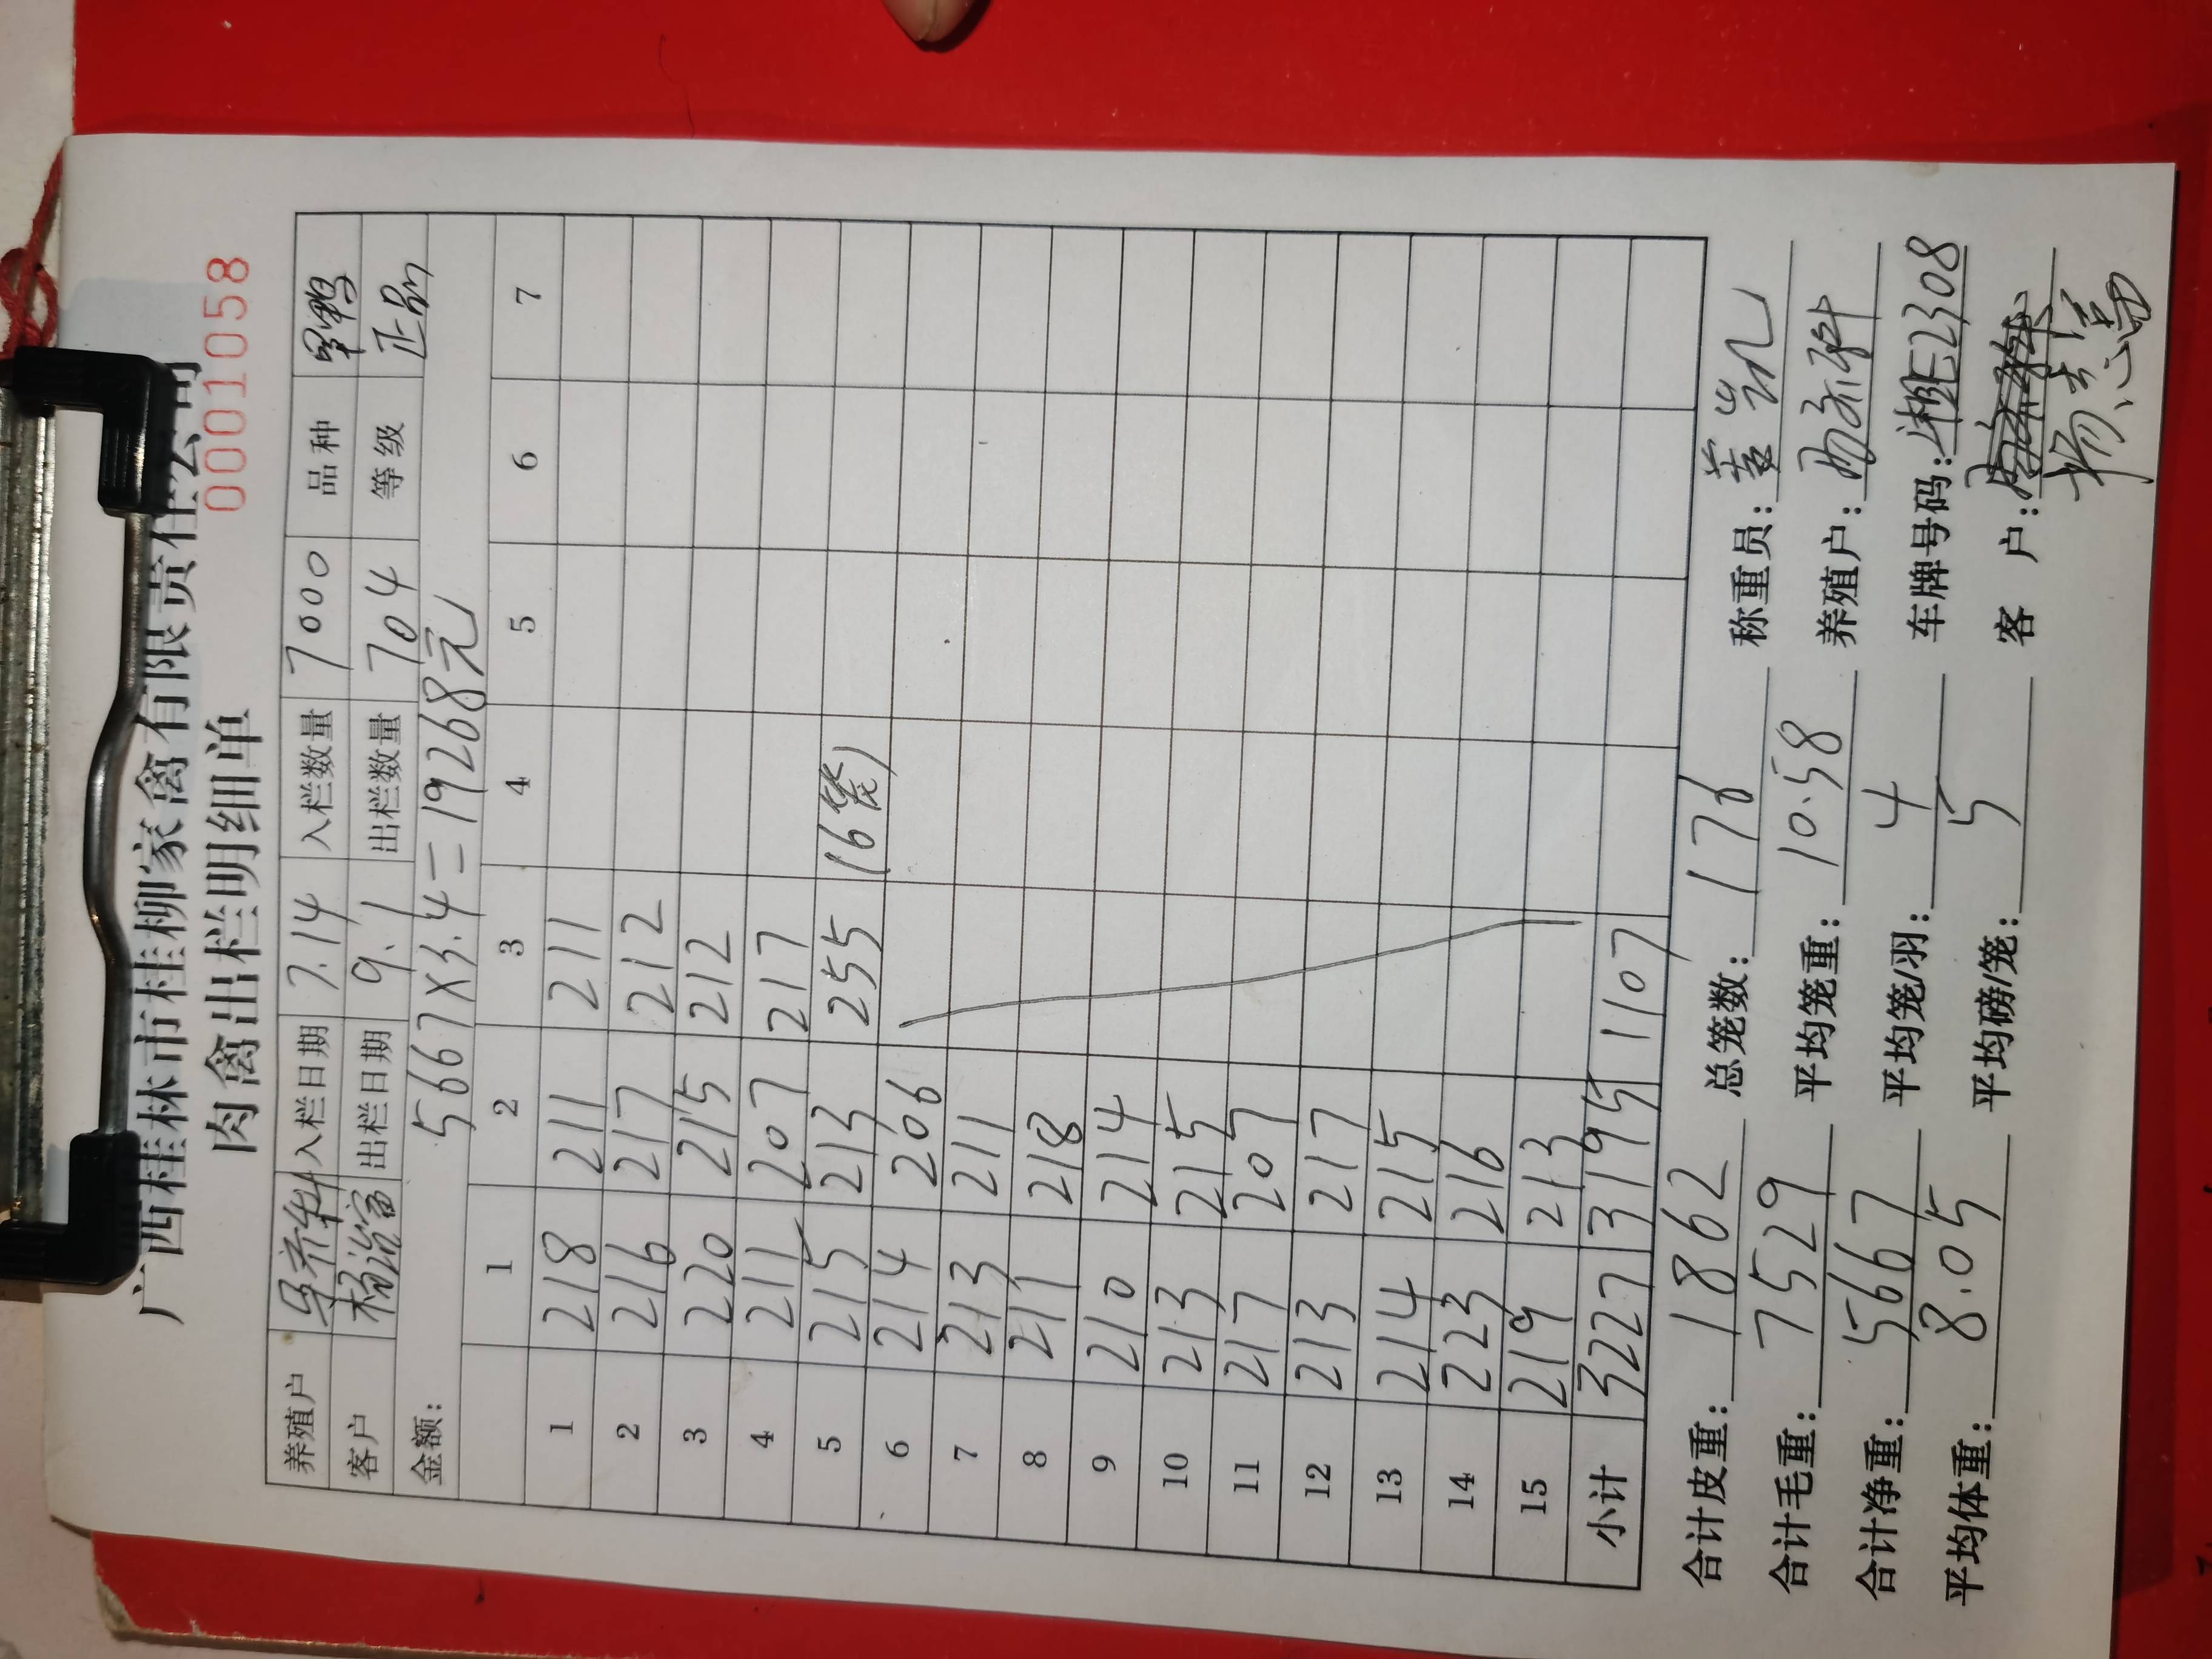 广西桂林市桂柳家禽有限责任公司
肉禽出栏明细单
0001058
养殖户 齐科 入栏日期 7.14 入栏数量 7000 品种 鸭
客户 杨 富 出栏日期 9.1 出栏数量 704 等级 正品
金额: 5667×3.4=19268元
1 2 3 4 5 6 7
1 218 211 211
2 216 217 212
3 220 215 212
4 211 207 217
5 215 213 255 (6笼)
6 214 206
7 213 211
8 211 218
9 210 214
10 213 215
11 217 207
12 213 217
13 214 215
14 223 216
15 219 213
小计 3227 3195 1107
合计皮重: 1862 总笼数: 176 称重员: 黄凯
合计毛重: 7529 平均笼重: 10.58 养殖户:
合计净重: 5667 平均笼/羽: 4 车牌号码: 湘BE2308
平均体重: 8.05 平均磅/笼: 5 客 户:
杨志富